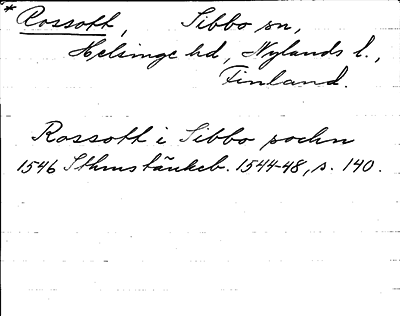 * Rossott, Sibbo sn,
Helsinge hd, Nylands l.,
Finland.
Rossott i Sibbo sochn
1546 Sthms tänkeb. 1544-48, s. 140.